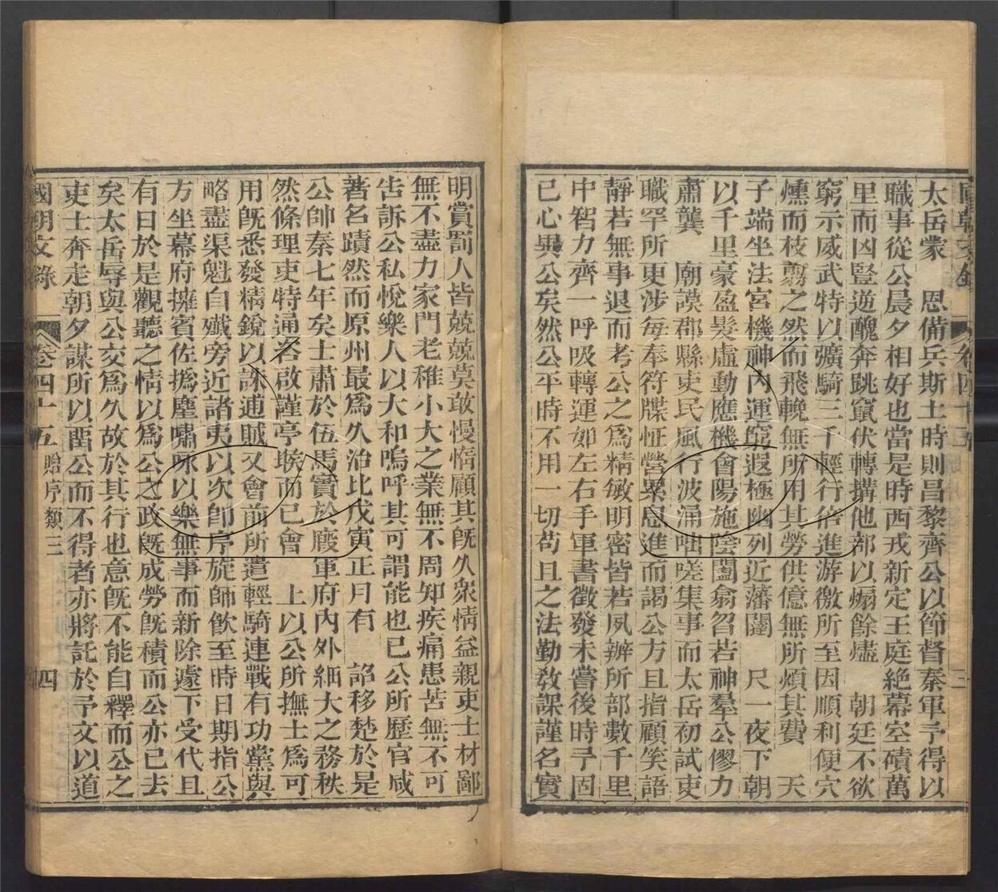 國朝文錄
卷四十五
三
太岳蒙　恩備兵斯土時則昌黎齊公以節督秦軍予得以
職事從公晨夕相好也當是時西戎新定王庭絶幕空磧萬
里而凶豎逆醜奔跳竄伏轉搆他部以煽餘燼　朝廷不欲
窮示威武特以彍騎三千輕行倍進游徼所至因順利便穴
燻而枝翦之然而飛輓無所用其勞供億無所煩其費　天
子端坐法宮機神內運窮遐極幽列近藩闥　尺一夜下朝
以千里豪盈髮虛動應機會陽施陰闔翕曶若神羣公僇力
肅龔　廟謨郡縣吏民風行波涌咄嗟集事而太岳初試吏
職罕所更涉每奉符牒怔營累息進而謁公方且指顧笑語
靜若無事退而考公之爲精敏明密皆若夙辦所部數千里
中智力齊一呼吸轉運如左右手軍書徵發未嘗後時予固
已心異公矣然公平時不用一切苟且之法勤敎課謹名實
明賞罰人皆兢兢莫敢慢惰顧其旣久衆情益親吏士材鄙
無不盡力家門老稚小大之業無不周知疾痛患苦無不可
告訴公私悅樂人以大和嗚呼其可謂能也已公所歷官咸
著名蹟然而原州最爲久治比戊寅正月有　詔移楚於是
公帥秦七年矣士肅於伍馬實於廄軍府內外細大之務秩
然條理吏特通名啟謹亭堠而已會　上以公所撫士爲可
用旣悉發精銳以誅逋賊又會前所遣輕騎連戰有功黨與
略盡渠魁自殲旁近諸夷以次卽序旋師飮至時日期指公
方坐幕府擁賓佐撝麈嘯咏以樂無事而新除遽下受代且
有日於是觀聽之情以爲公之政旣成勞旣積而公亦已去
矣太岳辱與公交爲久故於其行也意旣不能自釋而公之
吏士奔走朝夕謀所以畱公而不得者亦將託於予文以道
國朝文錄
卷四十五　贈序類三
四